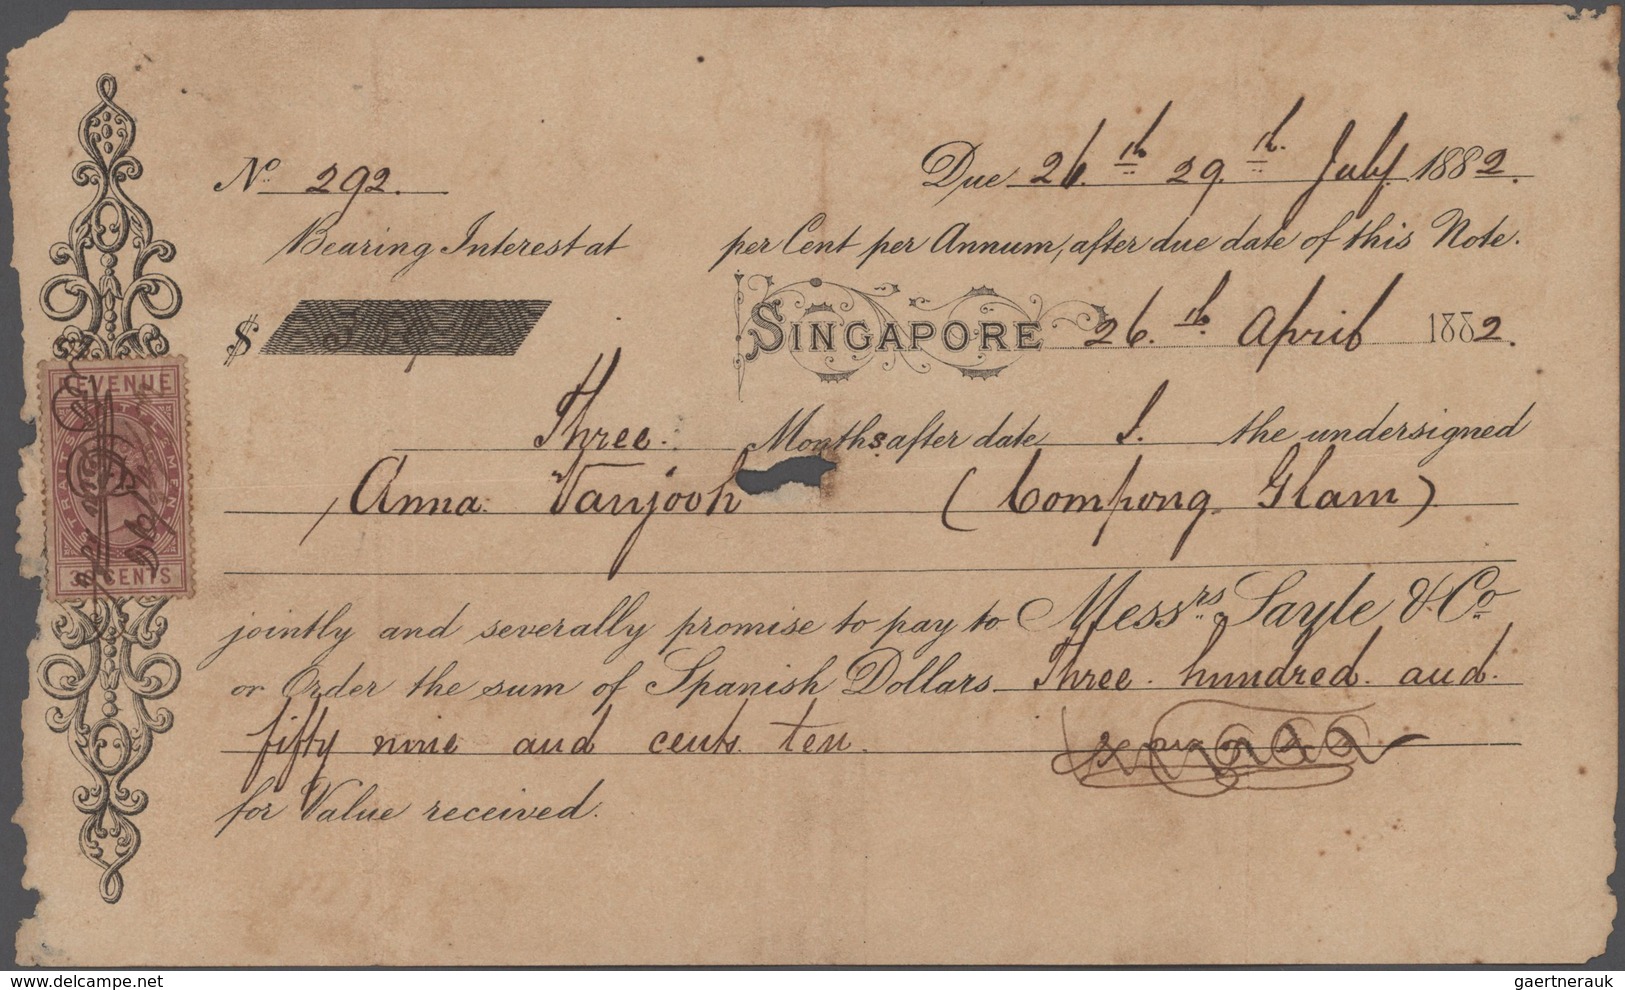 No. 292.
Due 26.th 29.th July. 1882.
Bearing Interest at per Cent per Annum, after due date of this Note.
$ 359 10
SINGAPORE 26.th April 1882.
Three. Months after date I. the undersigned
Anna Vanjooh (Compong Glam)
jointly and severally promise to pay to Messrs Sayle & Co
or Order the sum of Spanish Dollars Three. hundred. and.
fifty nine and cents ten.
for Value received.
REVENUE
STRAITS SETTLEMENTS
CENTS
gaertnerauk